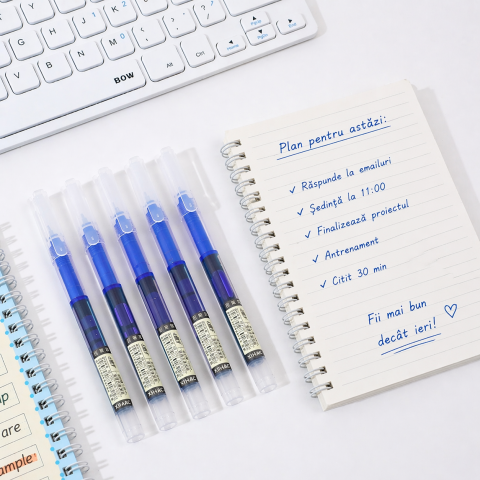 BOW
Alt
Ctrl
Plan pentru astăzi:
✓ Răspunde la emailuri
✓ Ședință la 11:00
✓ Finalizează proiectul
✓ Antrenament
✓ Citit 30 min
Fii mai bun
decât ieri! ♡
are
ample